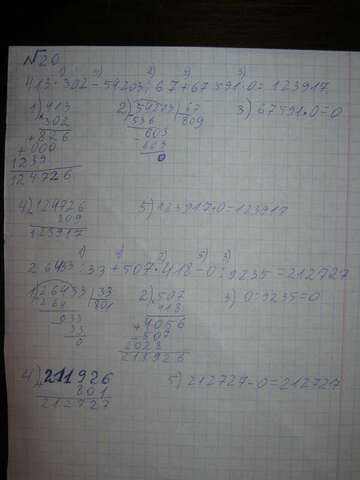 №20
1) 4) 2) 5) 3)
413·302-54203:67+67591·0=123917
1) 413 2) 54203 | 67 3) 67591·0=0
302 536 809
+826 - 603
+000 603
1239 0
124726
4) 124726 5) 123917+0=123917
809
123917
1) 4) 2) 5) 3)
26433:33+507·418-0:9235=212727
1) 26433 | 33 2) 507 3) 0:9235=0
264 801 418
-033 +4056
33 +507
0 2028
211926
4) 211926 5) 212727-0=212727
801
212727